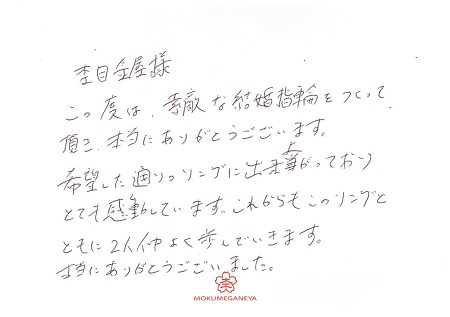 杢目金屋様
この度は、素敵な結婚指輪をつくって
頂き、本当にありがとうございます。
希望した通りのリングに出来上がっており
とても感動しています。これからもこのリングと
ともに2人仲よく歩んでいきます。
本当にありがとうございました。
MOKUMEGANEYA